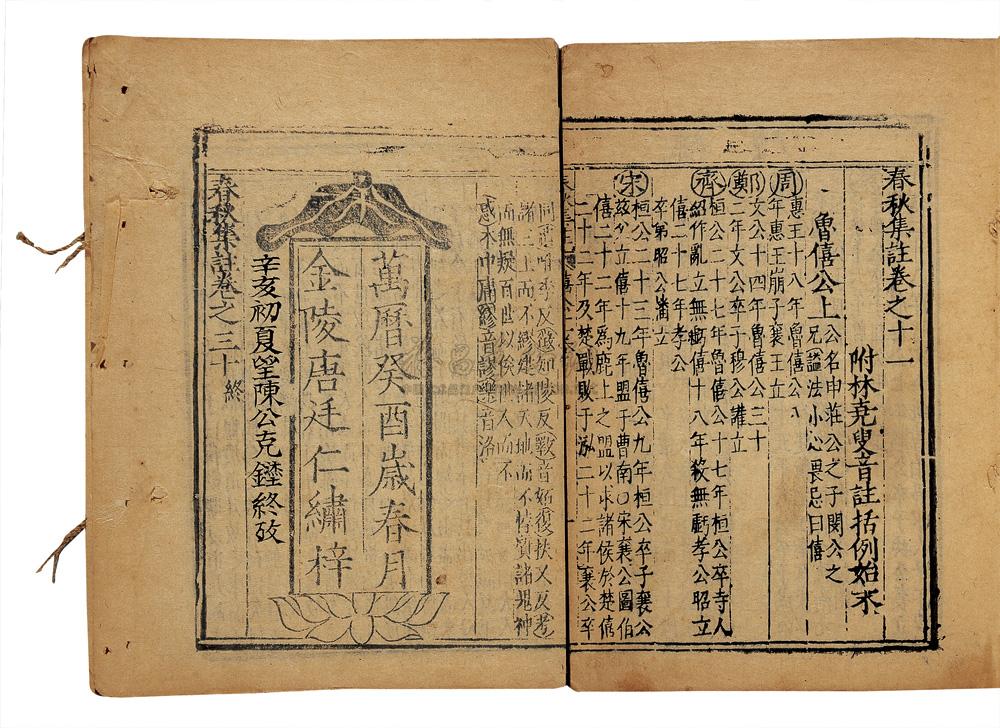 春秋集註卷之十一
附林堯叟音註括例始末
魯僖公上
公名申莊公之子閔公之
兄謚法小心畏忌曰僖
周
惠王十八年魯僖公
年惠王崩子襄王立
文公十四年魯僖公三十
鄭
二年文公卒子穆公蘭立
齊
桓公二十七年魯僖公十七年桓公卒寺人
紹作亂立無虧僖十八年殺無虧孝公昭立
僖二十七年孝公
卒弟昭公潘立
宋
桓公二十三年魯僖公九年桓公卒子襄公
茲父立僖十九年盟于曹南宋襄公圖伯
僖二十一年爲鹿上之盟以求諸侯於楚僖
二十二年及楚戰敗于泓二十二年襄公卒
諸三王而不繆建諸天地而不悖質諸鬼神
而無疑百世以俟聖人而不
惑
繆音謬樂音洛
萬曆癸酉歲春月
金陵唐廷仁繡梓
辛亥初夏望陳公克
終
春秋集註卷之三十
終